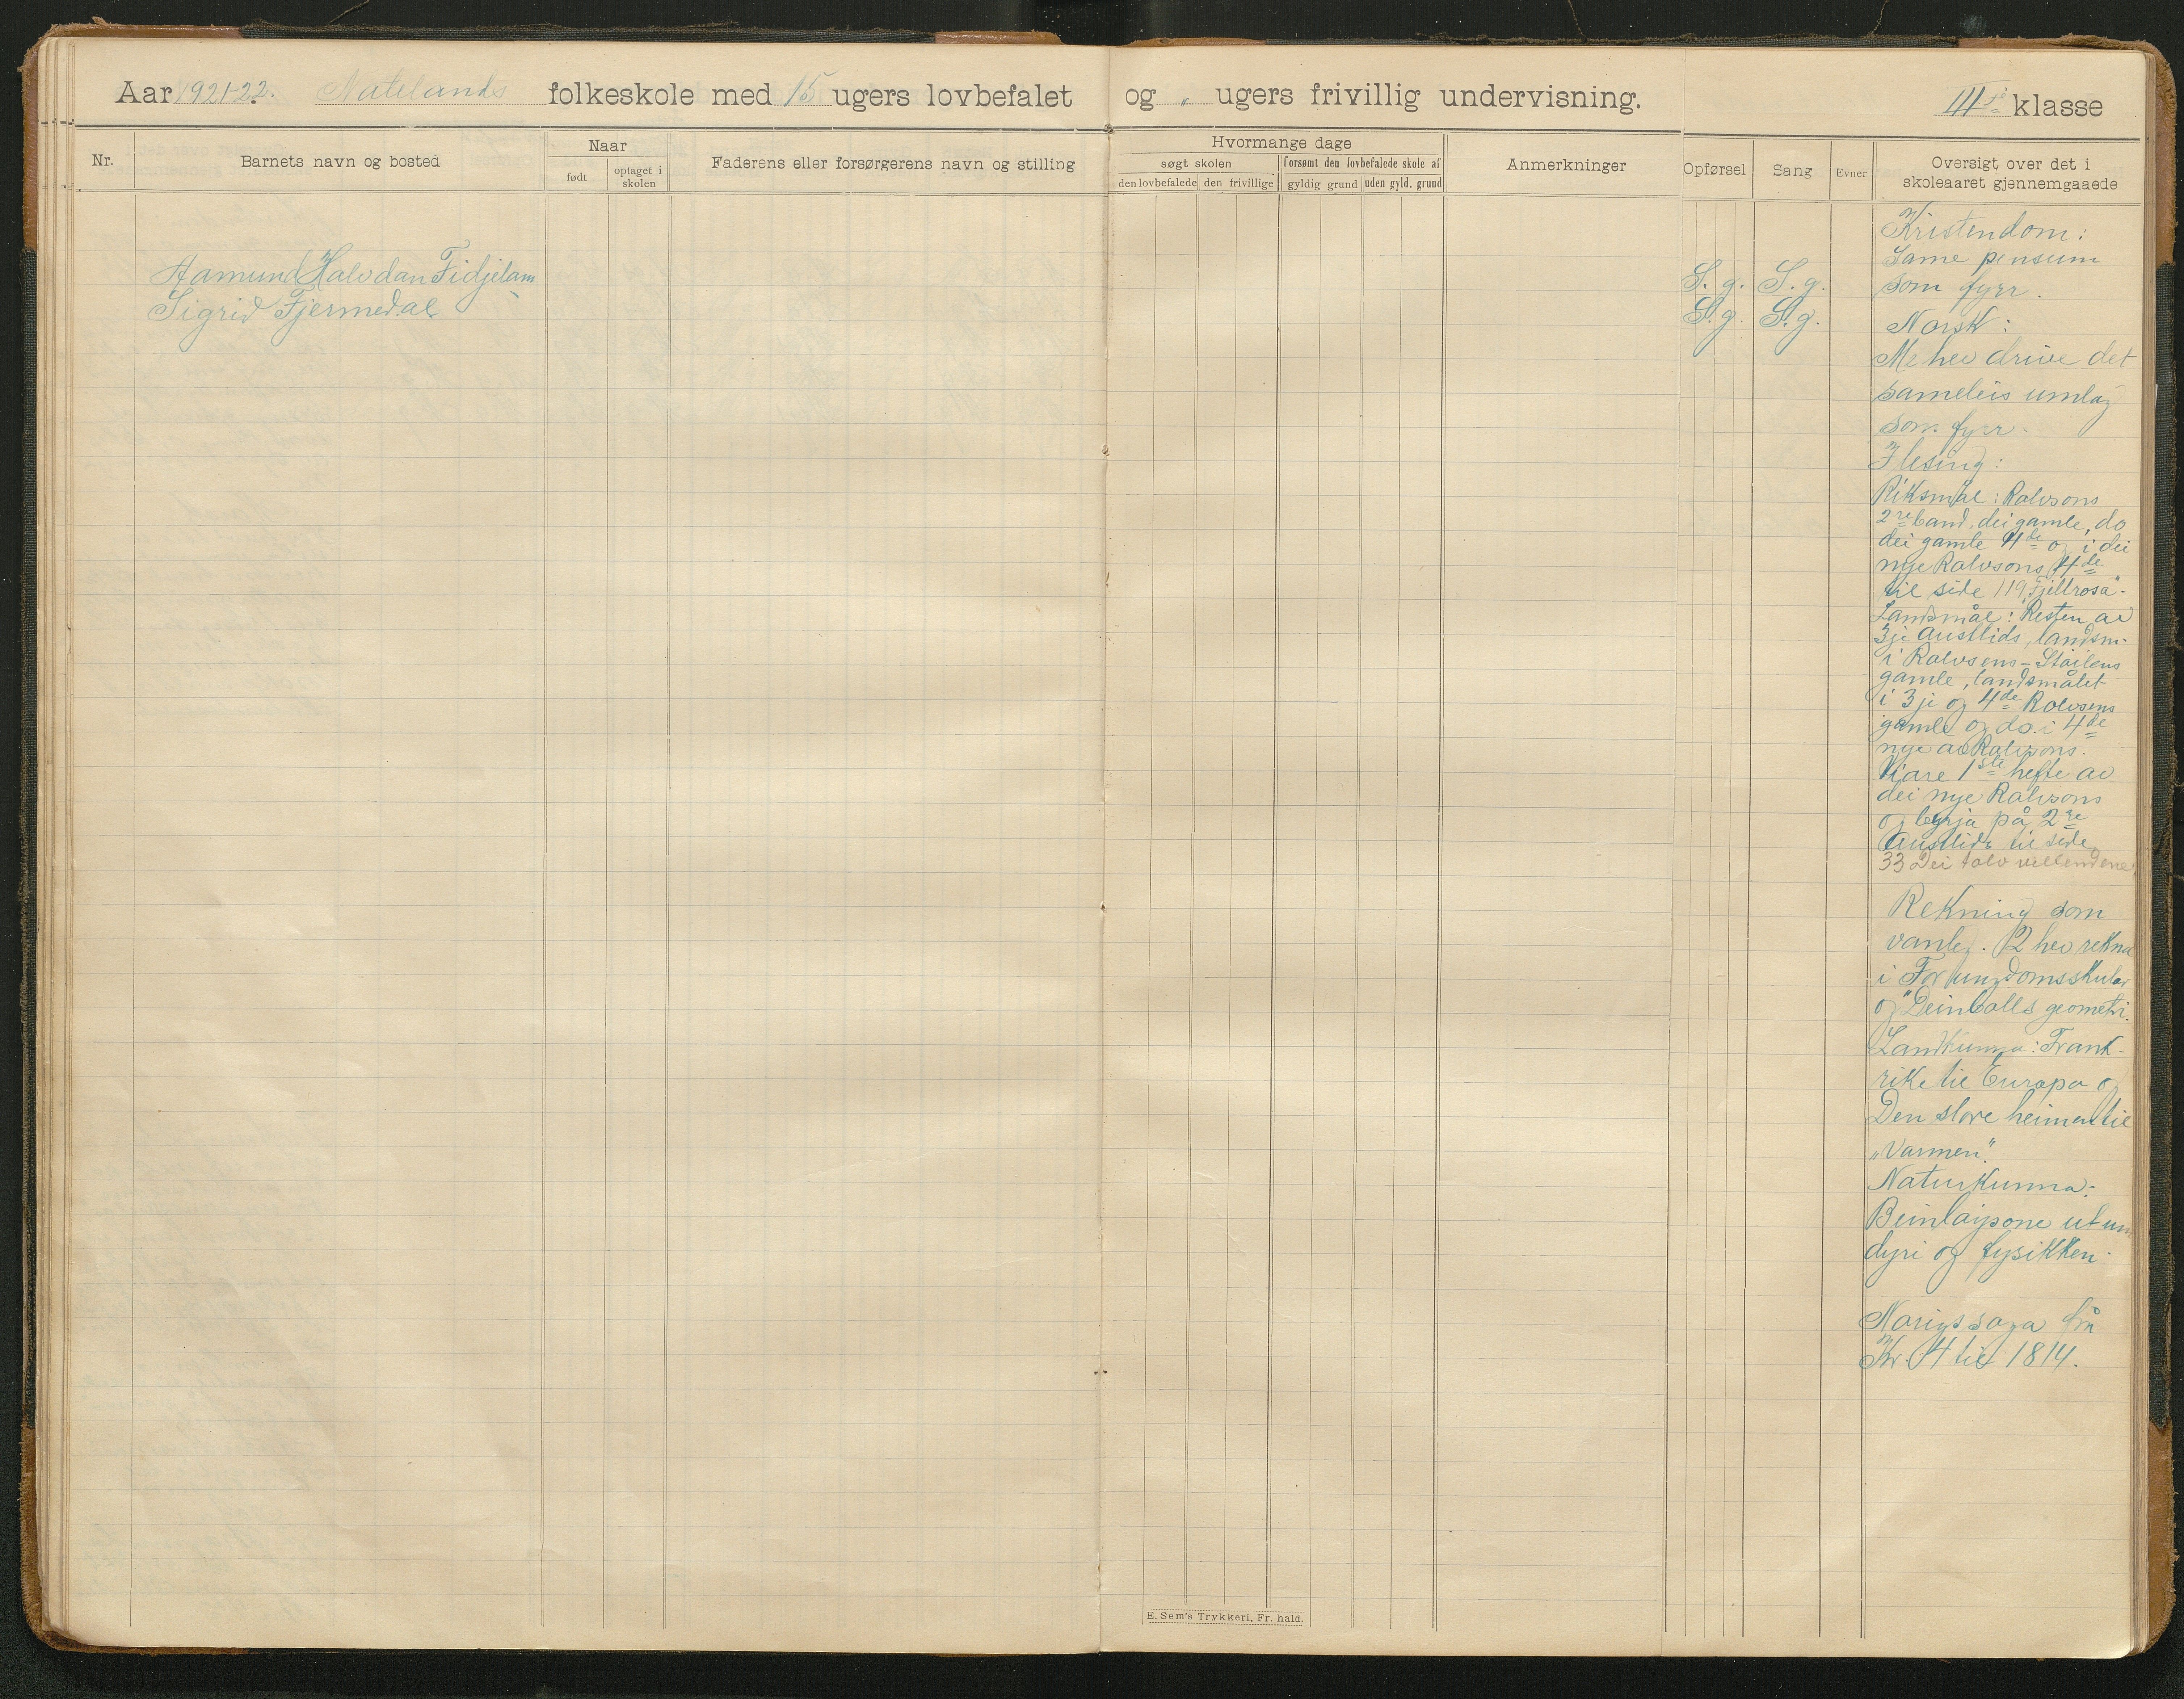 Aar 1921-22. Natelands folkeskole med 15 ugers lovbefalet og " ugers frivillig undervisning. III die klasse
Nr.
Barnets navn og bosted
Naar
født
optaget i skolen
Faderens eller forsørgerens navn og stilling
Hvormange dage
søgt skolen
forsømt den lovbefalede skole af
den lovbefalede
den frivillige
gyldig grund
uden gyld. grund
Anmerkninger
Opførsel
Sang
Evner
Oversigt over det i
skoleaaret gjennemgaaede
Aamund Halvdan Fidjelam S. g. S. g.
Sigrid Fjermedal S. g. S. g.
Kristendom:
Same pensum
som fyrr.
Norsk:
Me hev drive det
sameleis umlag
som fyrr.
I lesing:
Riksmål: Rolvsons
2re band, dei gamle, do
dei gamle 4de og i dei
nye Rolvsons 4de
til side 119 "Fjellrosa".
Landsmål: Resten av
3je Austlids, landsm.
i Rolvsens - Støilens
gamle, landsmålet
i 3je og 4de Rolvsens
gamle og do. i 4de
nye av Rolvsons.
Viare 1ste hefte av
dei nye Rolvsons
og byrja på 2re
Austlids til side
33 Dei tolv villendene
Rekning som
vanleg. 2 hev rekna
i For ungdomsskular
og "Deinbolls geometri.
Landkunna: Frank-
rike til Europa og
Den store heimen til
"Varmen".
Naturkunna:
Beinløysone ut um
dyri og fysikken.
Norigs soga frå
Kr. 4 til 1814.
E. Sem's Trykkeri, Fr. hald.